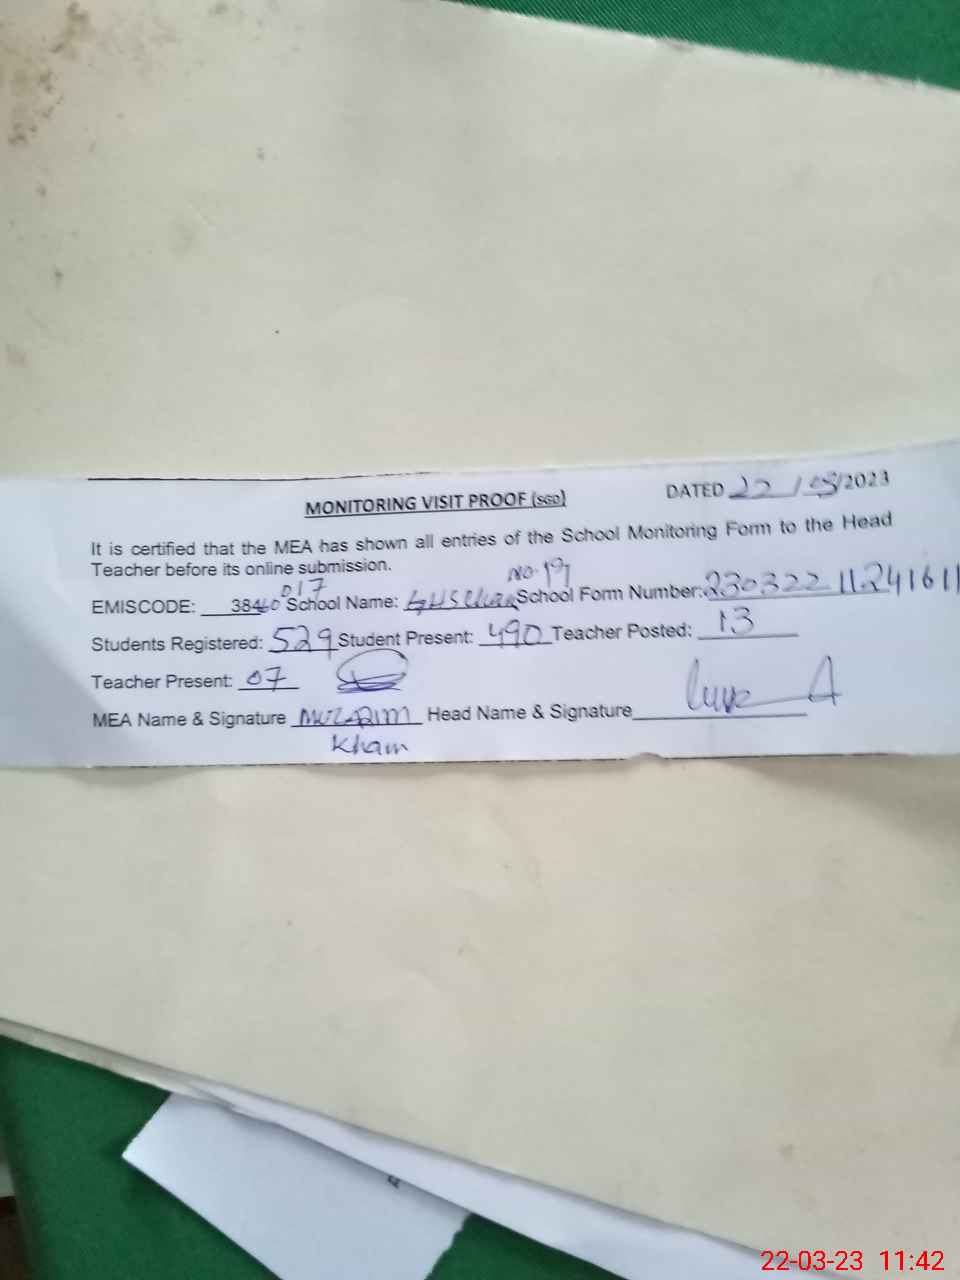 MONITORING VISIT PROOF (SGD) DATED 22 / 03/2023
It is certified that the MEA has shown all entries of the School Monitoring Form to the Head
Teacher before its online submission.
EMISCODE: 38460 017 School Name: GHS Chak No. 191 School Form Number: 230322 11241611
Students Registered: 529 Student Present: 490 Teacher Posted: 13
Teacher Present: 07
MEA Name & Signature Muzamim Head Name & Signature
Kham
22-03-23 11:42